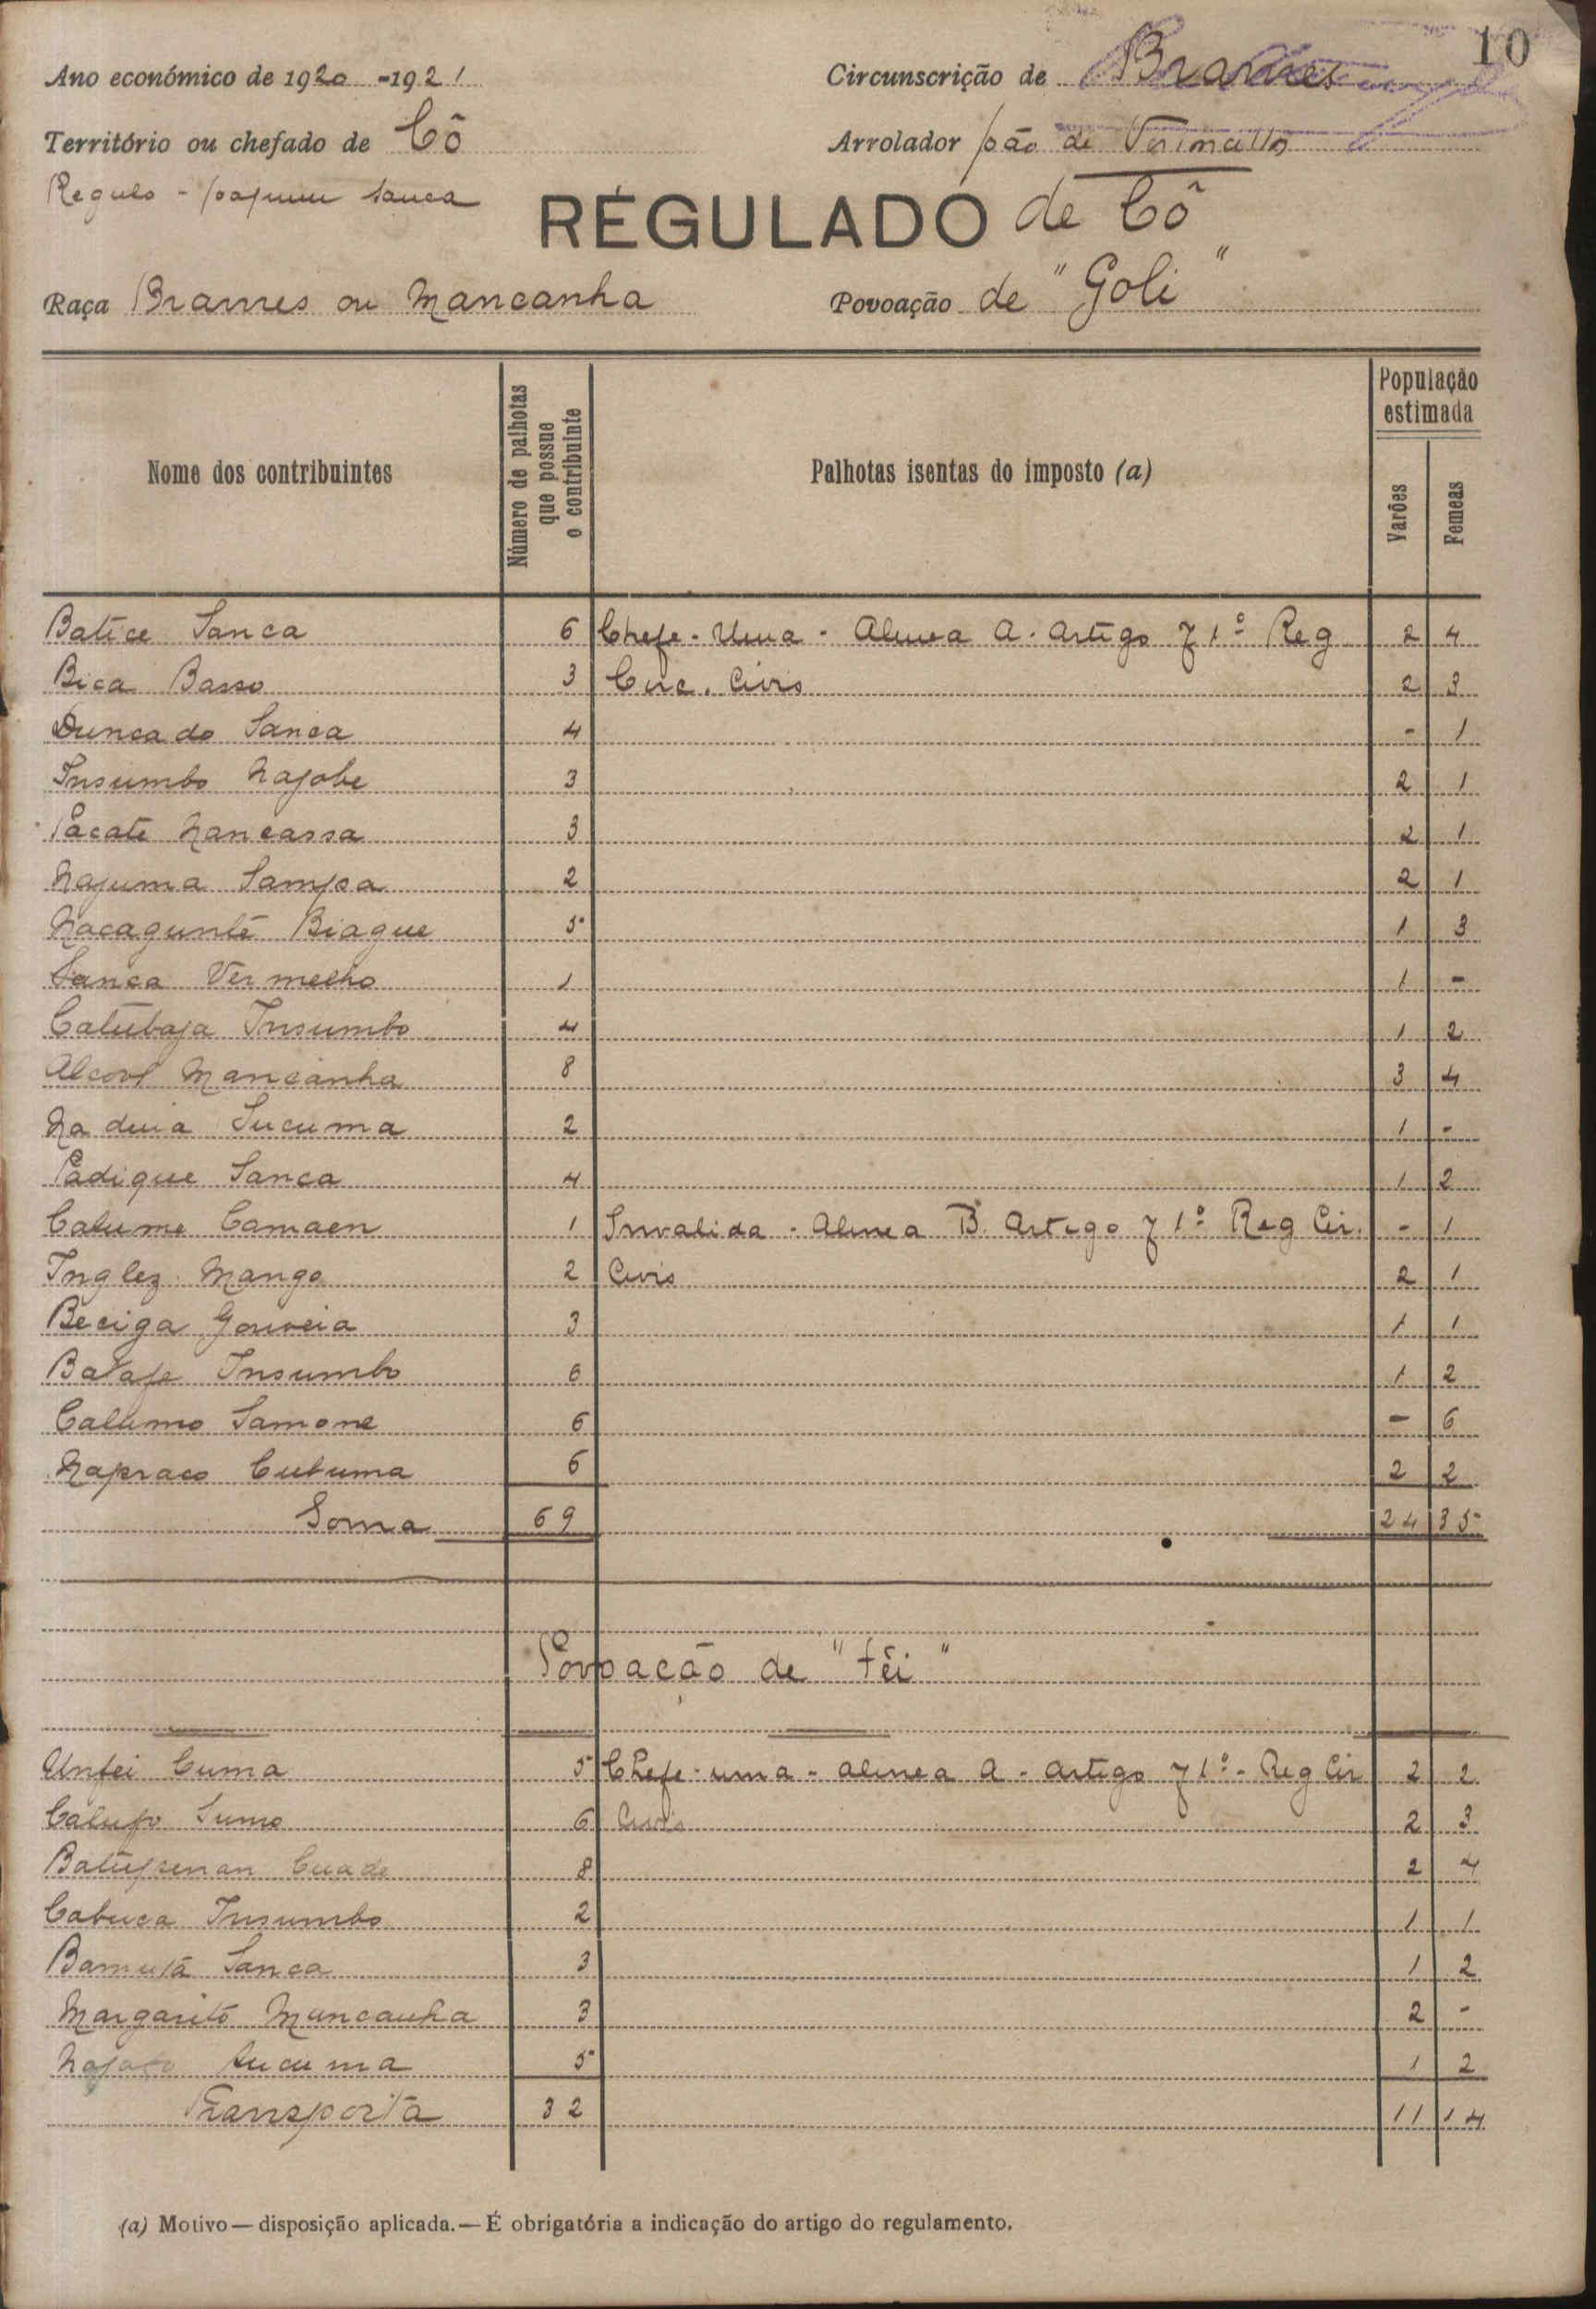 10
Ano económico de 1920-1921 Circunscrição de Brames
Território ou chefado de Cô Arrolador João de
Regulo - Joaquim Sanca
RÉGULADO de Cô
Raça Brames ou Mancanha Povoação de "Goli"
Nome dos contribuintes
Número de palhotas
que possue
o contribuinte
Palhotas isentas do imposto (a)
População
estimada
Varões
Femeas
Batice Sanca 6 Chefe - Uma - Alinea A. Artigo 71º Reg 2 4
Bica Basso 3 Circ. Civis 2 3
Duncado Sanca 4 - 1
Insumbo Najobe 3 2 1
Pacate Nancassa 3 2 1
Najuma Sampa 2 2 1
Nacagunté Biague 5 1 3
Sanca Vermelho 1 1 -
Catubaja Insumbo 4 1 2
Alcool Mancanha 8 3 4
Na duia Sucuma 2 1 -
Padique Sanca 4 1 2
Calume Camaen 1 Invalida - Alinea B. Artigo 71º Reg Cir. - 1
Inglez Mango 2 Civis 2 1
Beciga Gouveia 3 1 1
Batafe Insumbo 6 1 2
Calumo Samone 6 - 6
Napraco Cutuma 6 2 2
Soma 69 24 35
Povoação de "Têi"
Unfei Cuma 5 Chefe - uma - alinea A - artigo 71º - Reg Cir 2 2
Calufo Sumo 6 Civis 2 3
Batupenan Cuade 8 2 4
Cabuca Insumbo 2 1 1
Bamutá Sanca 3 1 2
Margarito Mancanha 3 2 -
Najato Sucuma 5 1 2
Transporta 32 11 14
(a) Motivo — disposição aplicada. — É obrigatória a indicação do artigo do regulamento.